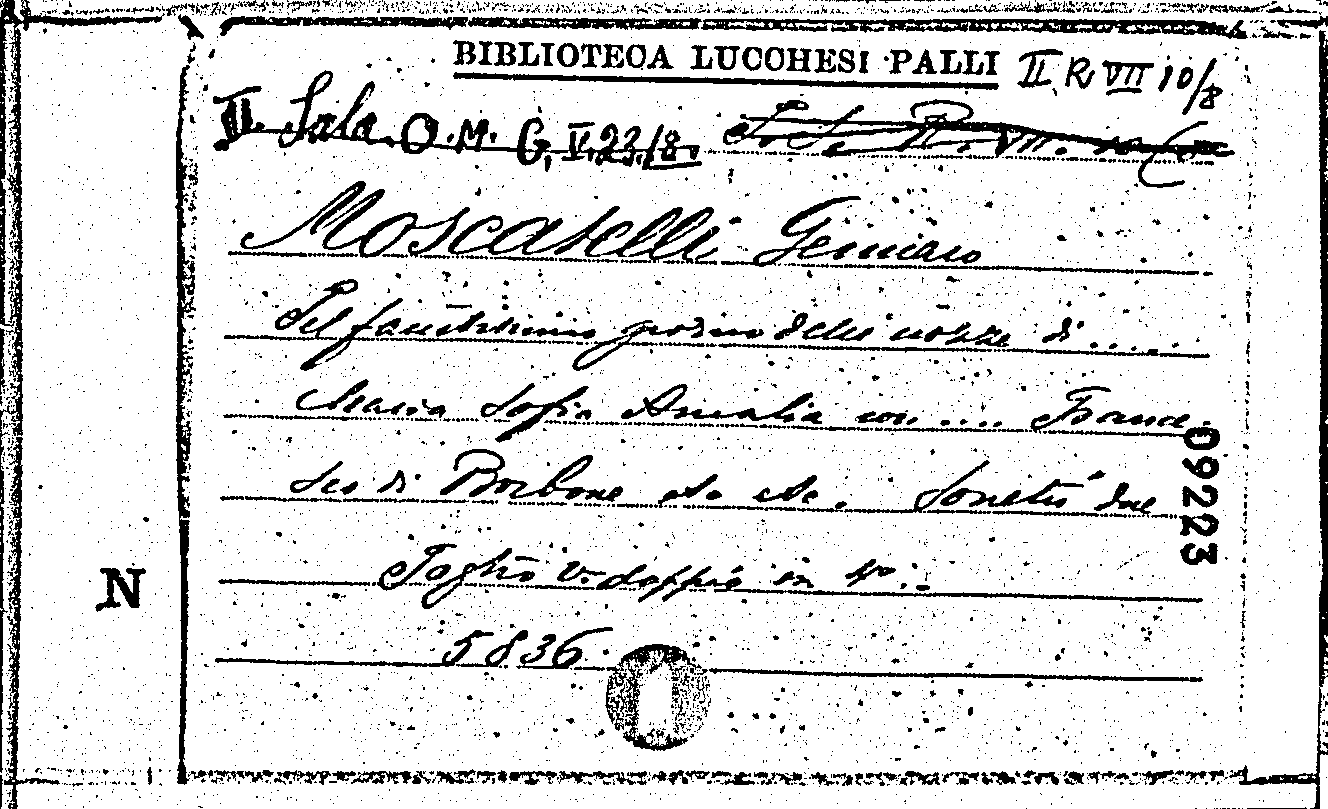 BIBLIOTECA LUCCHESI PALLI II R. VII 10/8
II. Sala. O.M. G. V. 23./8.
Moscatelli Gennaro
Pel faustissimo giorno delle nozze di .....
Maria Sofia Amalia con .... France
sco di Borbone etc etc. Sonetti due
Foglio v. doppio in 4º.
5836
09223
N